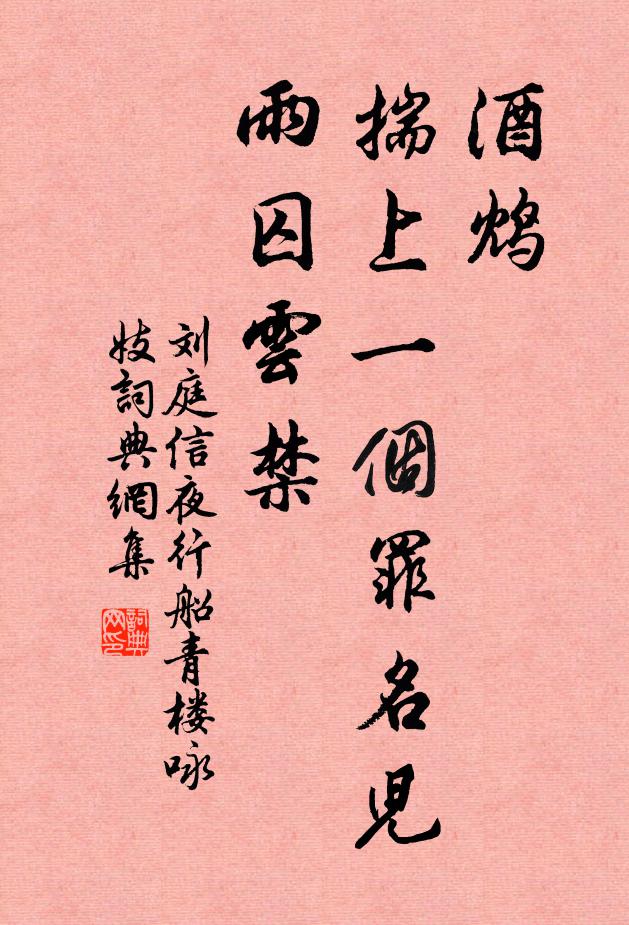 酒鸩
揣上一個罪名兒
雨囚雲禁
刘庭信夜行船青楼咏
妓詞典網集
詞典网印